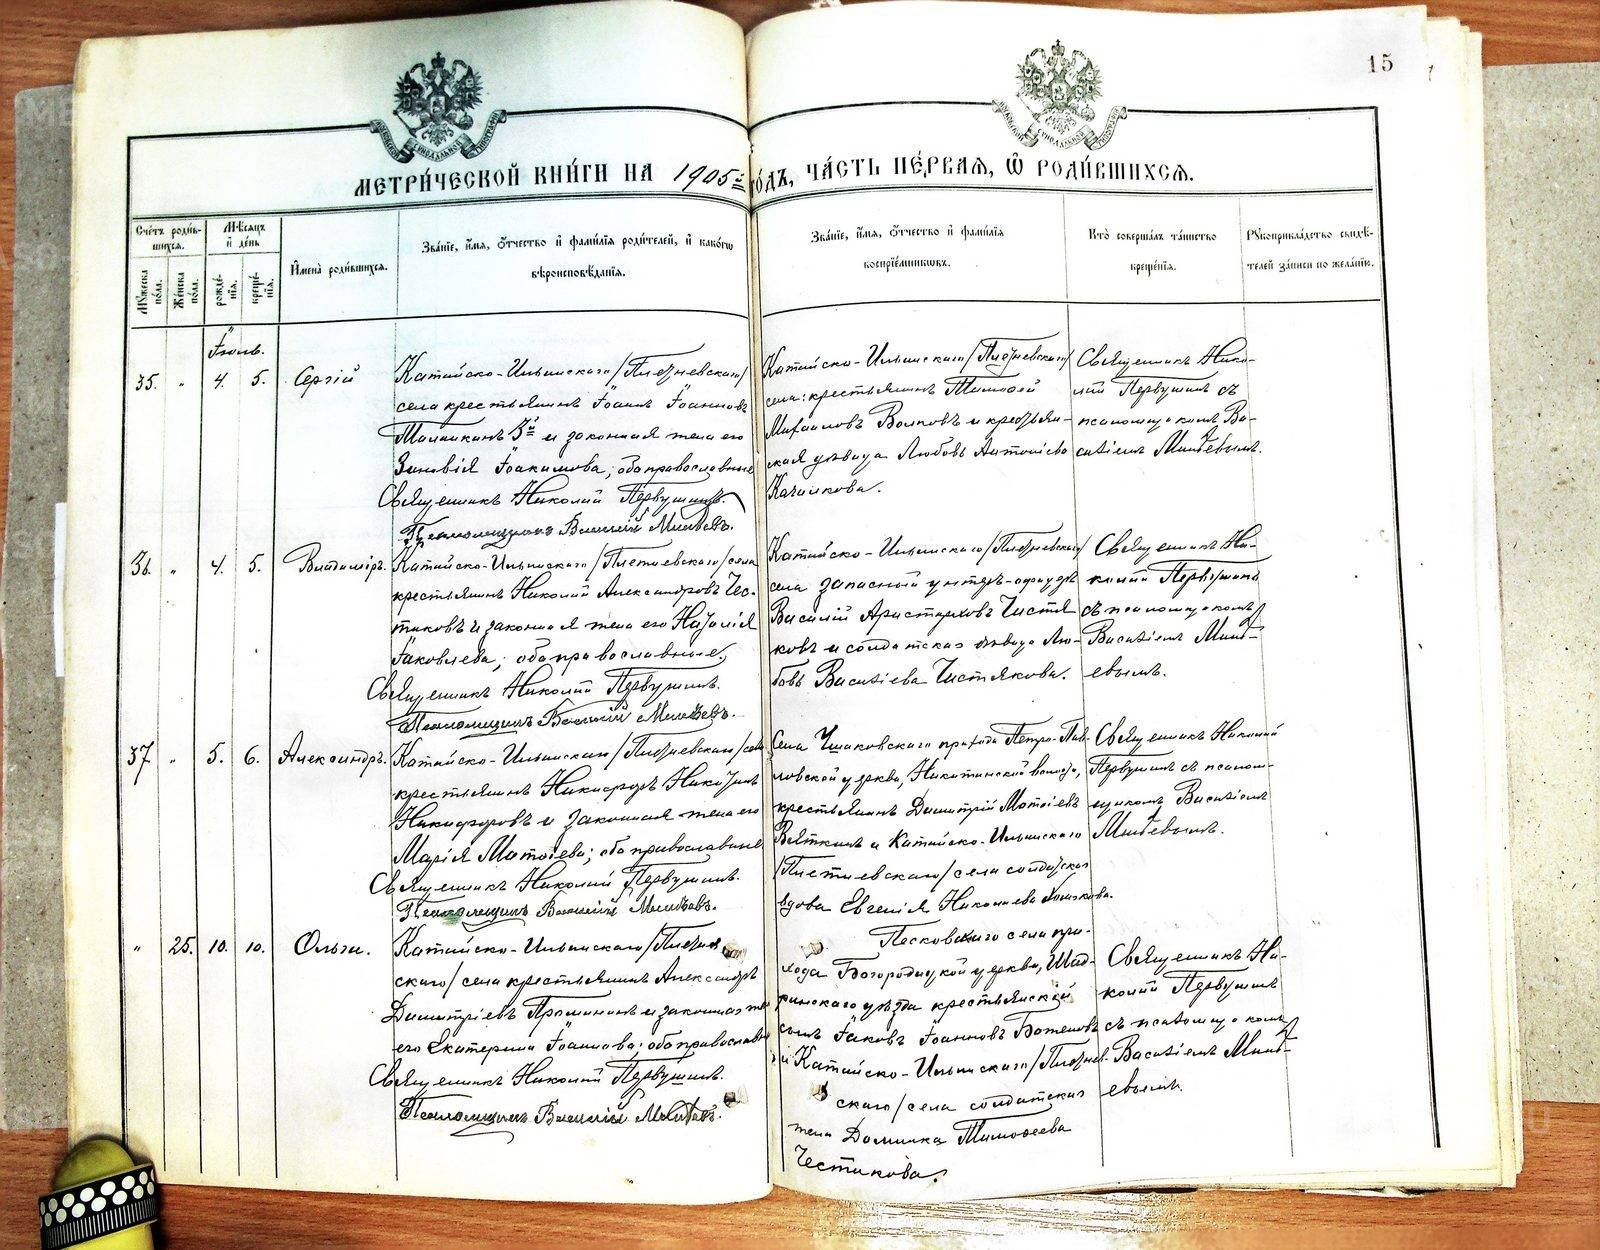 15
МЕТРИ́ЧЕСКОЙ КНИ́ГИ НА 1905й го́дъ, ЧА́СТЬ ПЕ́РВАЯ, Ѽ РОДИ́ВШИХСЯ.
Сче́тъ роди́в-
шихся.
Мѣ́сяцъ
и҆ де́нь
Мꙋ́жеска по́ла.
Же́нска по́ла.
рожде́-
нїѧ.
креще́-
нїѧ.
И҆мена̀ роди́вшихся.
Зва́нїе, и҆́мя, ѻ҆́тчество и҆ фами́лїя роди́телей, и҆ како́гѡ
вѣроисповѣ́данїѧ.
Зва́нїе, и҆́мя, ѻ҆́тчество и҆ фами́лїя
воспрїе́мникѡвъ.
Кто̀ соверша́лъ та́инство
креще́нїѧ.
Рꙋкоприкла́дство свидѣ́-
телей за́писи по жела́нїю.
Iюль.
35. " 4. 5. Сергiй
Катайско-Ильинскаго /Плетневскаго/
села крестьянинъ Iоаннъ Iоанновъ
и законная жена его
Зиновiя Iоакимова; оба православные
Священникъ Николай Первушинъ.
Псаломщикъ Василiй
Катайско-Ильинскаго /Плетневскаго/
села: крестьянинъ Тимофей
Михаиловъ Волковъ и крестьян-
ская дѣвица Любовь Антонiева
Качалкова.
Священникъ Нико-
лай Первушинъ съ
псаломщикомъ Ва-
силiемъ
36. " 4. 5. Владимiръ.
Катайско-Ильинскаго /Плетневскаго/ села
крестьянинъ Николай Александровъ Чес-
тиковъ и законная жена его Наталiя
Iаковлева; оба православные.
Священникъ Николай Первушинъ.
Псаломщикъ Василiй
Катайско-Ильинскаго /Плетневскаго/
села запасный унтеръ-офицеръ
Василiй Аристарховъ Чистя
ковъ и солдатская дѣвица Лю-
бовь Василiева Чистякова.
Священникъ Ни-
колай Первушинъ
съ псаломщикомъ
Василiемъ
евымъ.
37 " 5. 6. Александръ.
Катайско-Ильинскаго /Плетневскаго/ села
крестьянинъ Никифоръ Никитинъ
Никифоровъ и законная жена его
Марiя Матѳiева; оба православные
Священникъ Николай Первушинъ.
Псаломщикъ Василiй
Села Чмаковскаго прихода Петро-Пав-
ловской церкви, Никитинской волости,
крестьянинъ Димитрiй Матѳiевъ
Вяткинъ и Катайско-Ильинскаго
/Плетневскаго/ села солдатская
вдова Евгенiя Николаева
Священникъ Николай
Первушинъ съ псалом-
щикомъ Василiемъ
" 25. 10. 10. Ольги.
Катайско-Ильинскаго /Плетнев
скаго/ села крестьянинъ Александръ
Димитрiевъ и законная же
его Екатерина Iоаннова; оба православн
Священникъ Николай Первушинъ.
Псаломщикъ Василiй
Песковскаго села при-
хода Богородицкой церкви, Шад-
ринскаго уѣзда крестьянскiй
сынъ Iаковъ Iоанновъ Боженовъ
и Катайско-Ильинскаго /Плетнев-
скаго/ села солдатская
жена Домника Тимофеева
Честикова.
Священникъ Ни-
колай Первушинъ
съ псаломщикомъ
Василiемъ
евымъ.